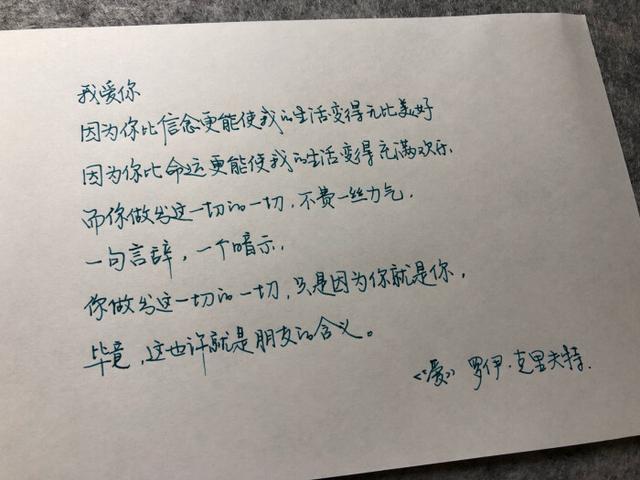 我爱你
因为你比信念更能使我的生活变得无比美好
因为你比命运更能使我的生活变得充满欢乐.
而你做出这一切的一切,不费一丝力气.
一句言辞,一个暗示.
你做出这一切的一切,只是因为你就是你,
毕竟,这也许就是朋友的含义。
《爱》 罗伊·克里夫特.